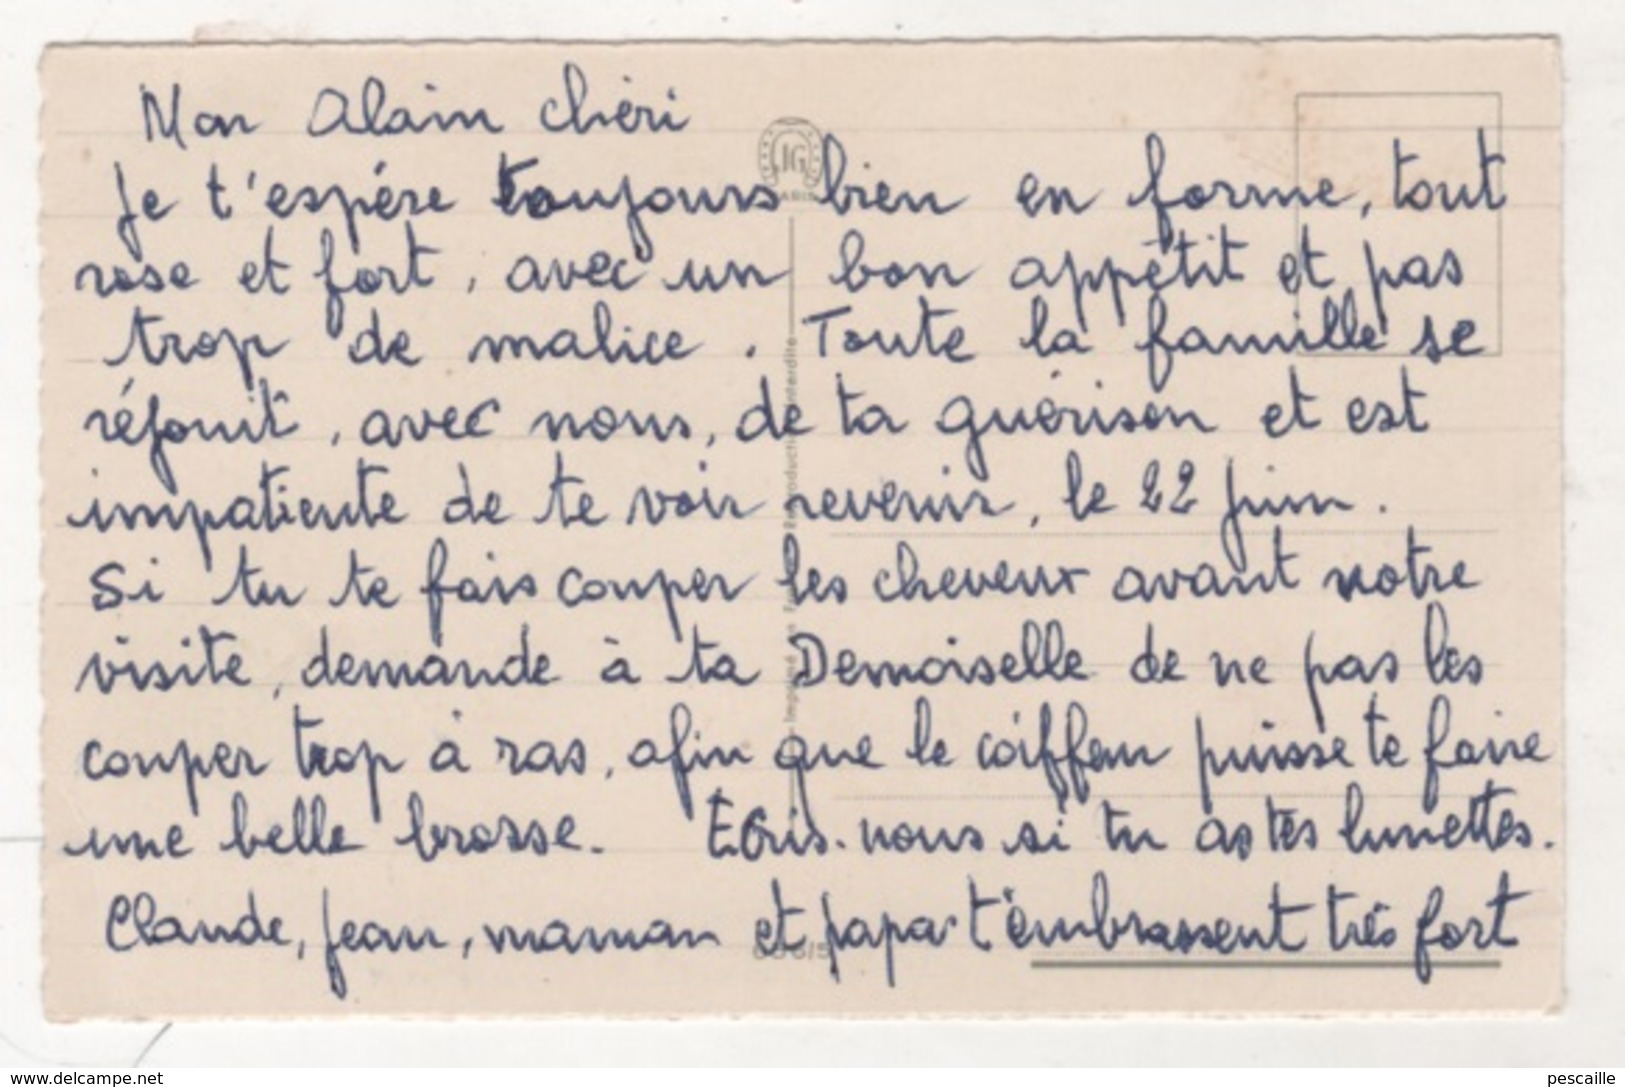 Mon Alain chéri
IG
PARIS
Je t'espère toujours bien en forme, tout
rose et fort, avec un bon appétit et pas
trop de malice. Toute la famille se
réjouit, avec nous, de ta guérison et est
impatiente de te voir revenir, le 22 juin.
Si tu te fais couper les cheveux avant notre
visite, demande à ta Demoiselle de ne pas les
couper trop à ras, afin que le coiffeur puisse te faire
une belle brosse. Ecris-nous si tu as tes lunettes.
Claude, Jean, maman et papa t'embrassent très fort
www.delcampe.net
pescaille